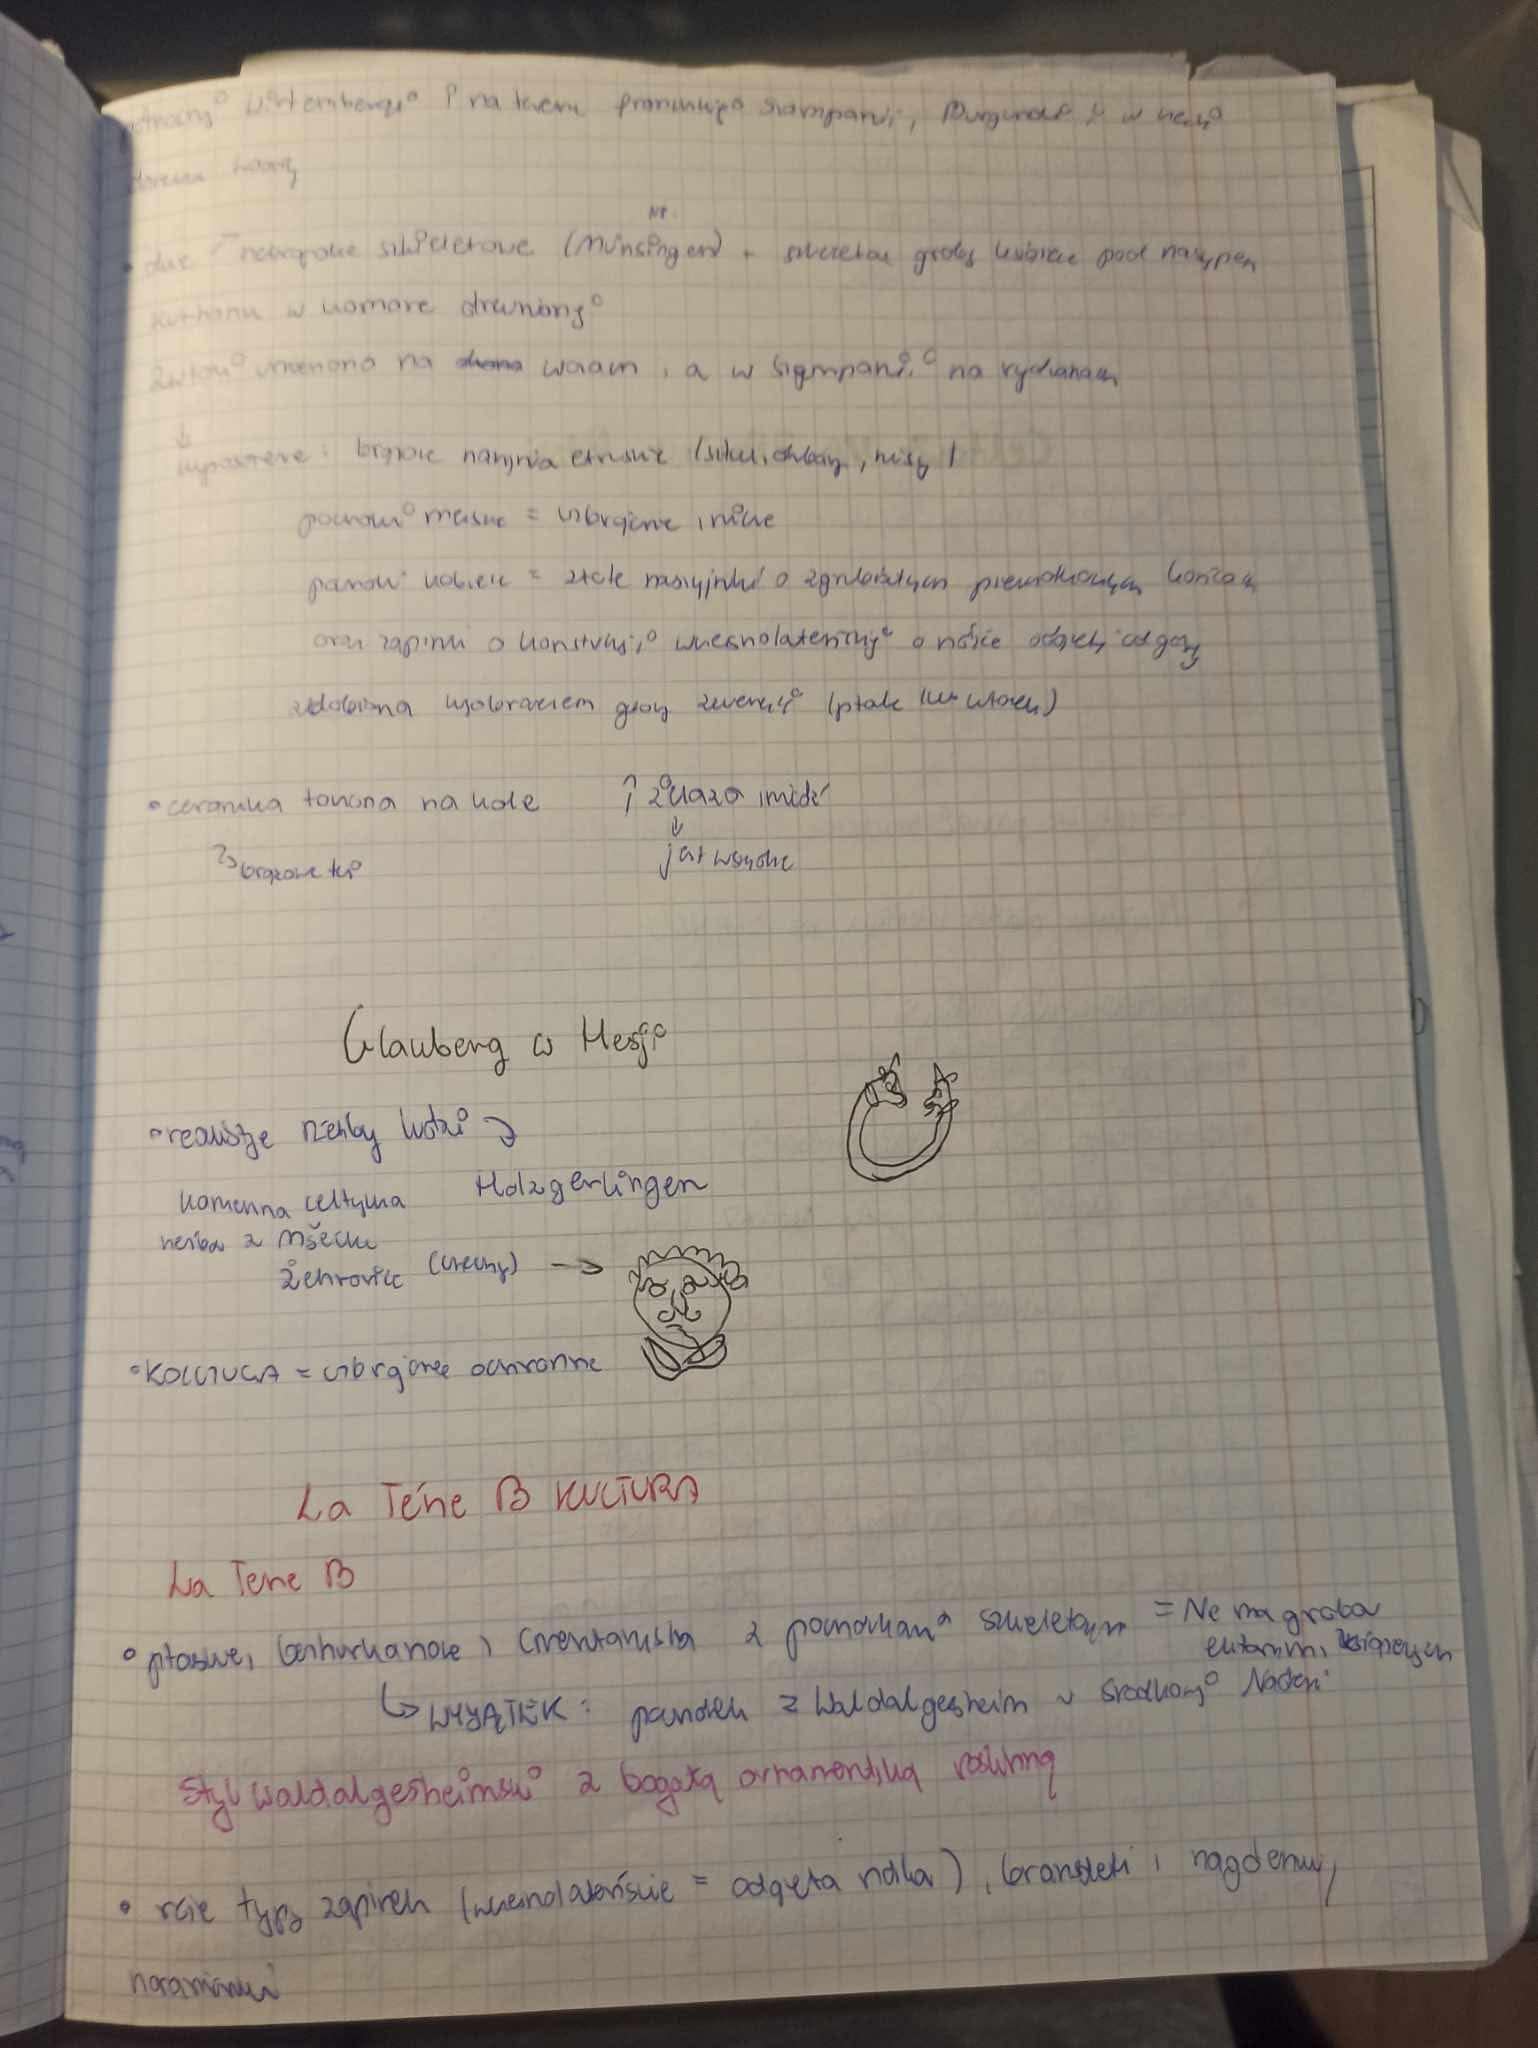 Wirtembergi i na terenie francuskiej Szampanii, Burgundii i w
duże nekropole szkieletowe (np. Münsingen) + szkieletowe groby kobiece pod nasypem
kurhanu w komorze drewnianej
zwłoki na wozach, a w Szampanii na rydwanach
↓
wyposażenie: brązowe naczynia etruskie (situle, dzbany, misy)
pochówki męskie = uzbrojenie, 
pochówki kobiece = złote naszyjniki o zgrubiałych pieczątkowych końcach
oraz zapinki o konstrukcji wczesnolateńskiej o nóżce odgiętej od góry
zdobiona wyobrażeniem głowy zwierzęcej (ptak lub człowiek)
• ceramika toczona na kole ↑ żelaza i miedź
↓
brązowe też jest wysokie
Glauberg w Hesji
• realistyczne rzeźby ludzi
kamienna celtycka Holzgerlingen
rzeźba z Mšecké
Žehrovice (Czechy) →
• KOLCZUGA = uzbrojenie ochronne
La Téne B KULTURA
La Tene B
• płaskie, bezkurhanowe, cmentarzyska z pochówkami szkieletowym = Nie ma grobów
elitarnych, książęcych
↳ WYJĄTEK: pochówek z Waldalgesheim w środkowej Nadrenii
Styl waldalgesheimski z bogatą ornamentyką roślinną
• różne typy zapinek (wczesnolateńskie = odgięta nóżka), bransolетki i nagolenniki,
naramienniki